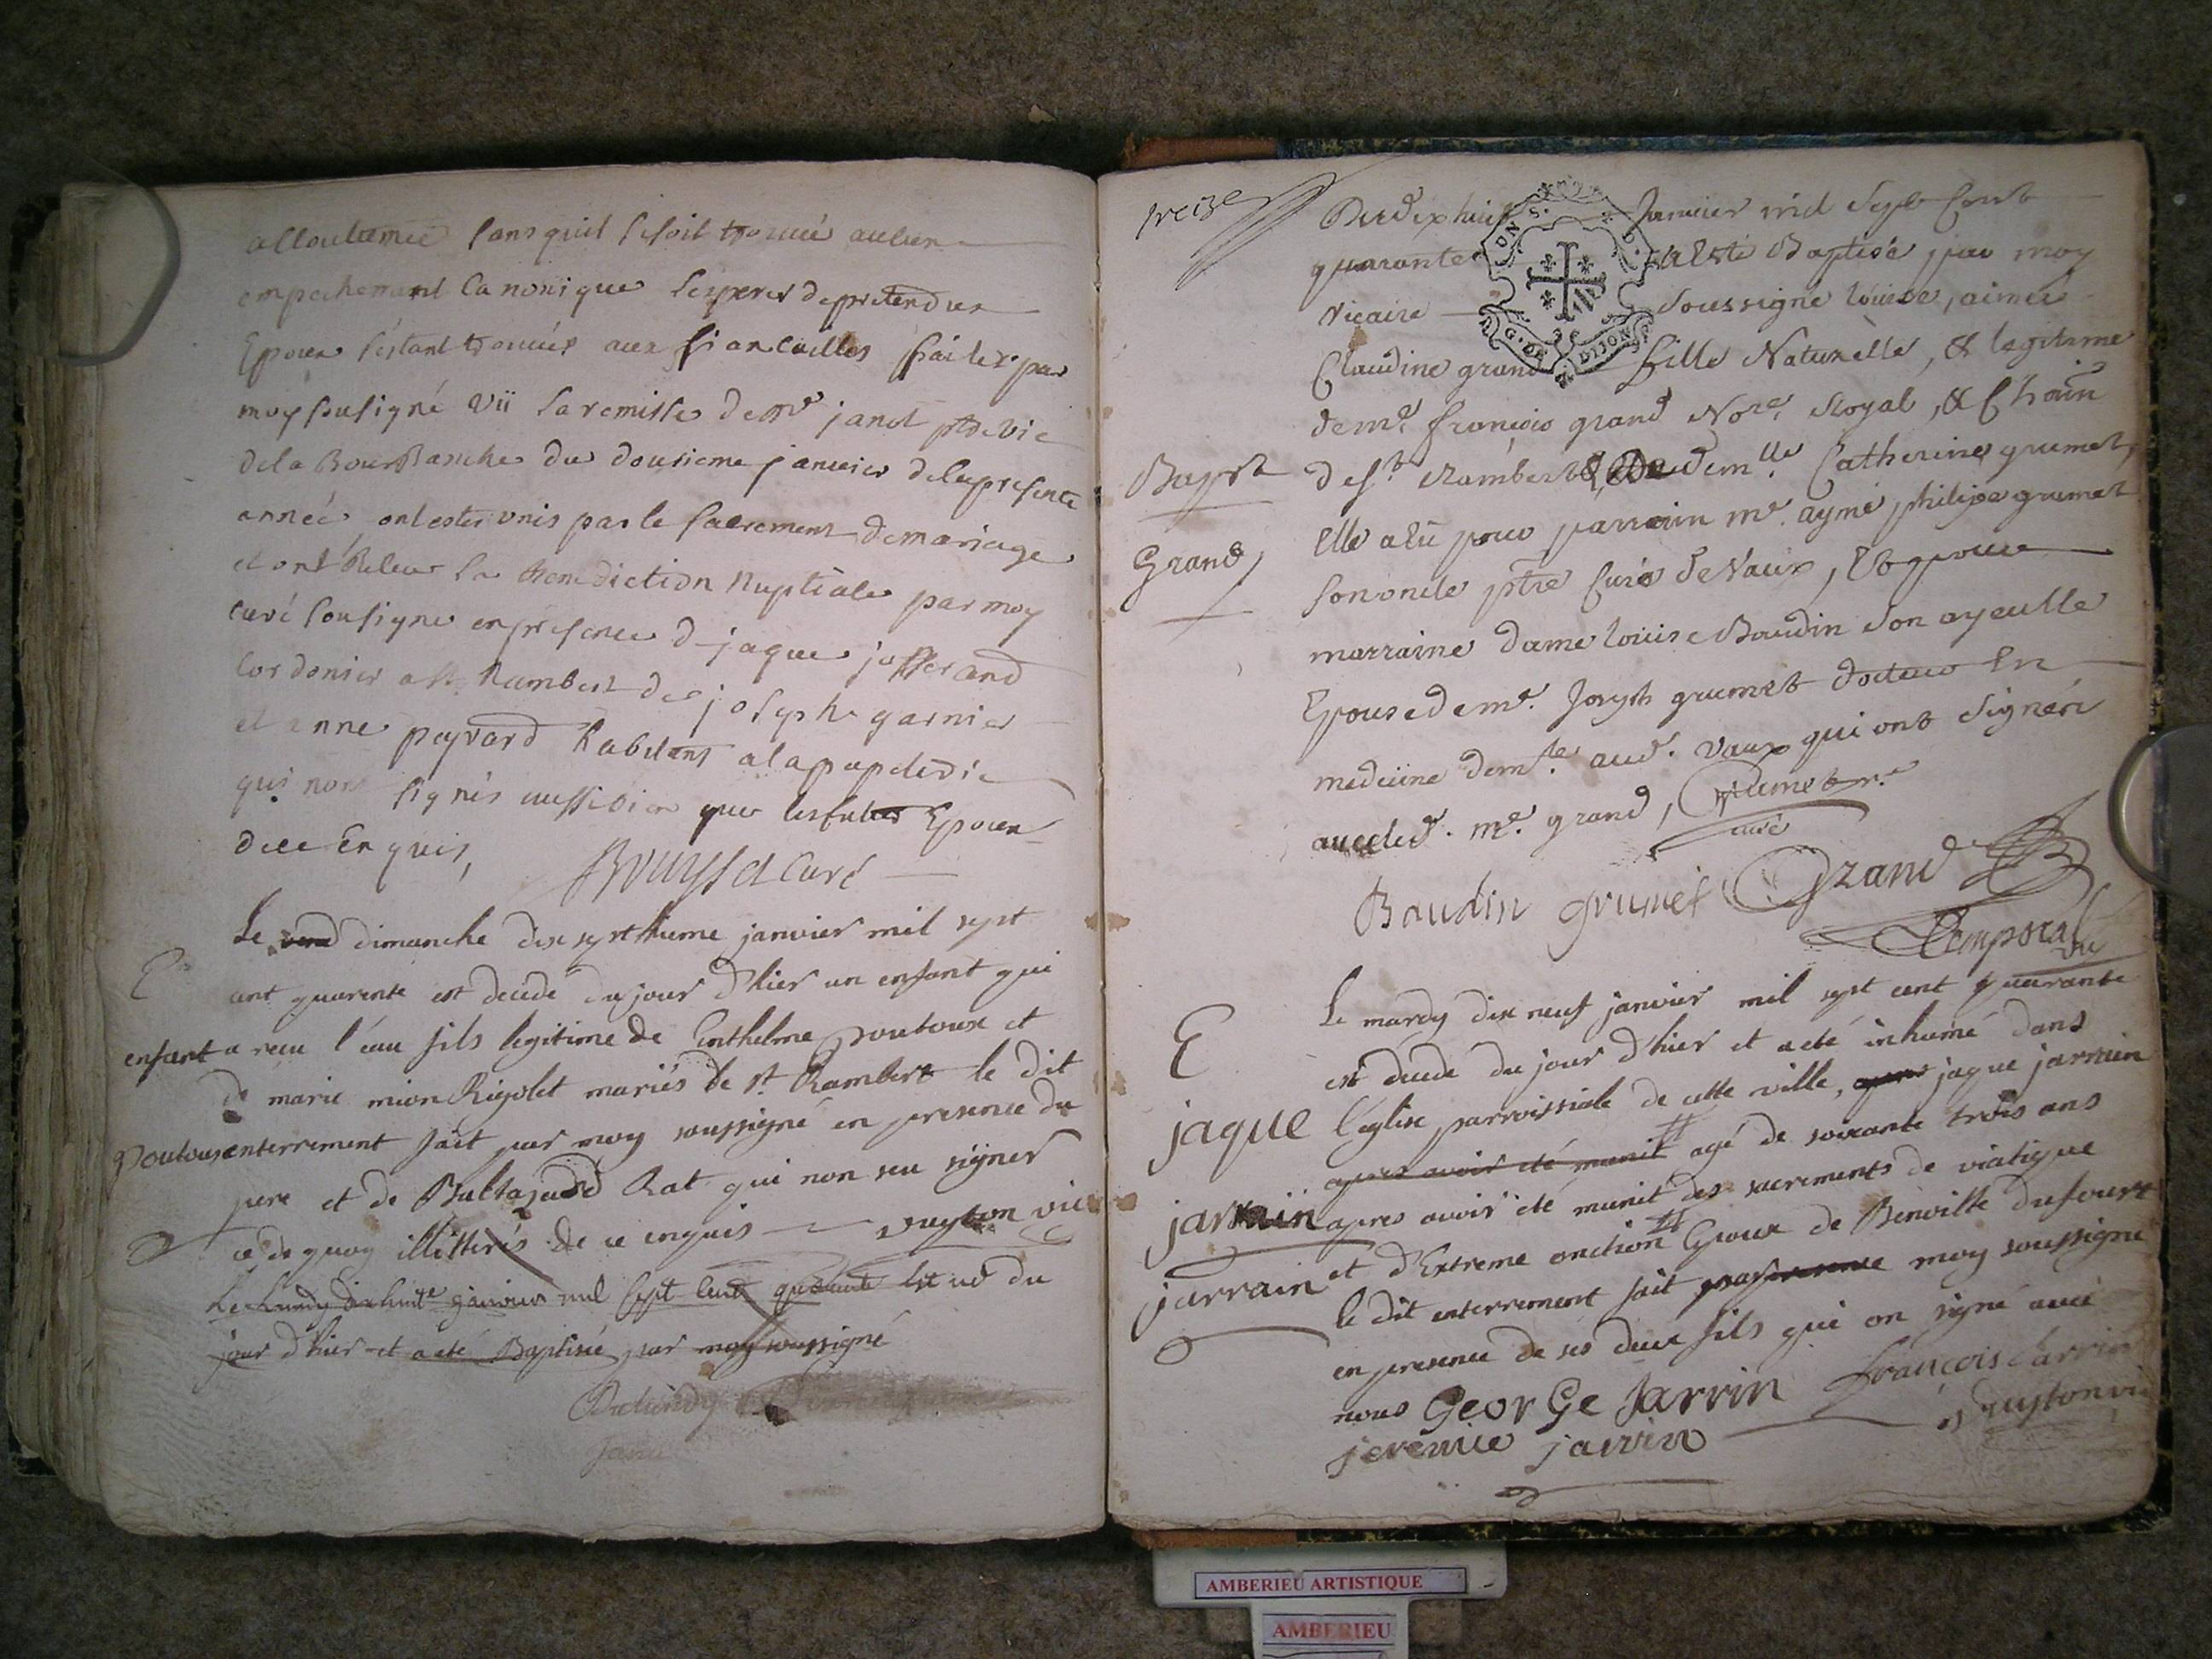 accoutumée sans quil se soit trouvé aucun
empechement Canonique les peres de pretendus
Epoux s'estant trouvés aux fiancailles faites par
moy sousigné vü la remisse de mr janot ptre vic
de la Bourbanche du dousieme janvier de la presente
année, ont estez unis par le sacrement de mariage
et ont Releu la Benediction Nuptiale par moy
curé sousigne en presence de jaque josserand
Cordonier a st Rambert de joseph garnier
et anne payrard habitant a la
qui nont signés aussi bien que les Epoux
de ce Enquis,
curé
Le dimanche dix septhieme janvier mil sept
cent quarente est decede du jour d'hier un enfant qui
E
enfant a recu l'éau fils legitime de Enthelme poutoux et
de marie mion Rigolet mariés de st Rambert le dit
poutoux enterrement fait par moy soussigné en presence du
pere et de Baltazard Rat qui non seu signer
ce de quoy illitterés de ce enquis vuyton vic
Le Lundy dixhuite janvier mil sept cent quarante est né du
jour d'hier et a eté Baptisé par moy soussigné
treize
Du dixhuit Janvier mil Sept Cent
quarante a Esté Baptisée par moy
vicaire soussigné louise, aimée
Claudine grand fille Naturelle, & legitime
de me. françois grand Nore. Royal, & Chain
Bapt
de st. Rambert & demlle. Catherine grumet,
Elle a Eü pour parrain mr. aymé philipe grumet
Grand
son oncle ptre Curé de Vaux, Et pour
marraine dame louise Baudin son ayeulle
Epouse de mr. Joseph grumet docteur En
medecine aud. vaux qui ont signés
avec led. me. grand,
curé
ONS. D.
G. DE DIJON
Baudin grumet Grand
Temporal
vic
Le mardy dix neuf janvier mil sept cent quarante
E
est decede du jour d'hier et a eté inhumé dans
jaque l'église parroissiale de cette ville, jaque jarrain
apres avoir eté munit agé de soixante trois ans
jarrain apres avoir eté munit des sacrements de viatique
jarrain et d'Extreme onction Epoux de Benoitte dufourt
le dit enterrement fait moy soussigné
en presence de ses deux fils qui on signé avec
nous George Jarrin françois Jarrin
jeremie jarrin vuyton vic
AMBERIEU ARTISTIQUE
AMBERIEU